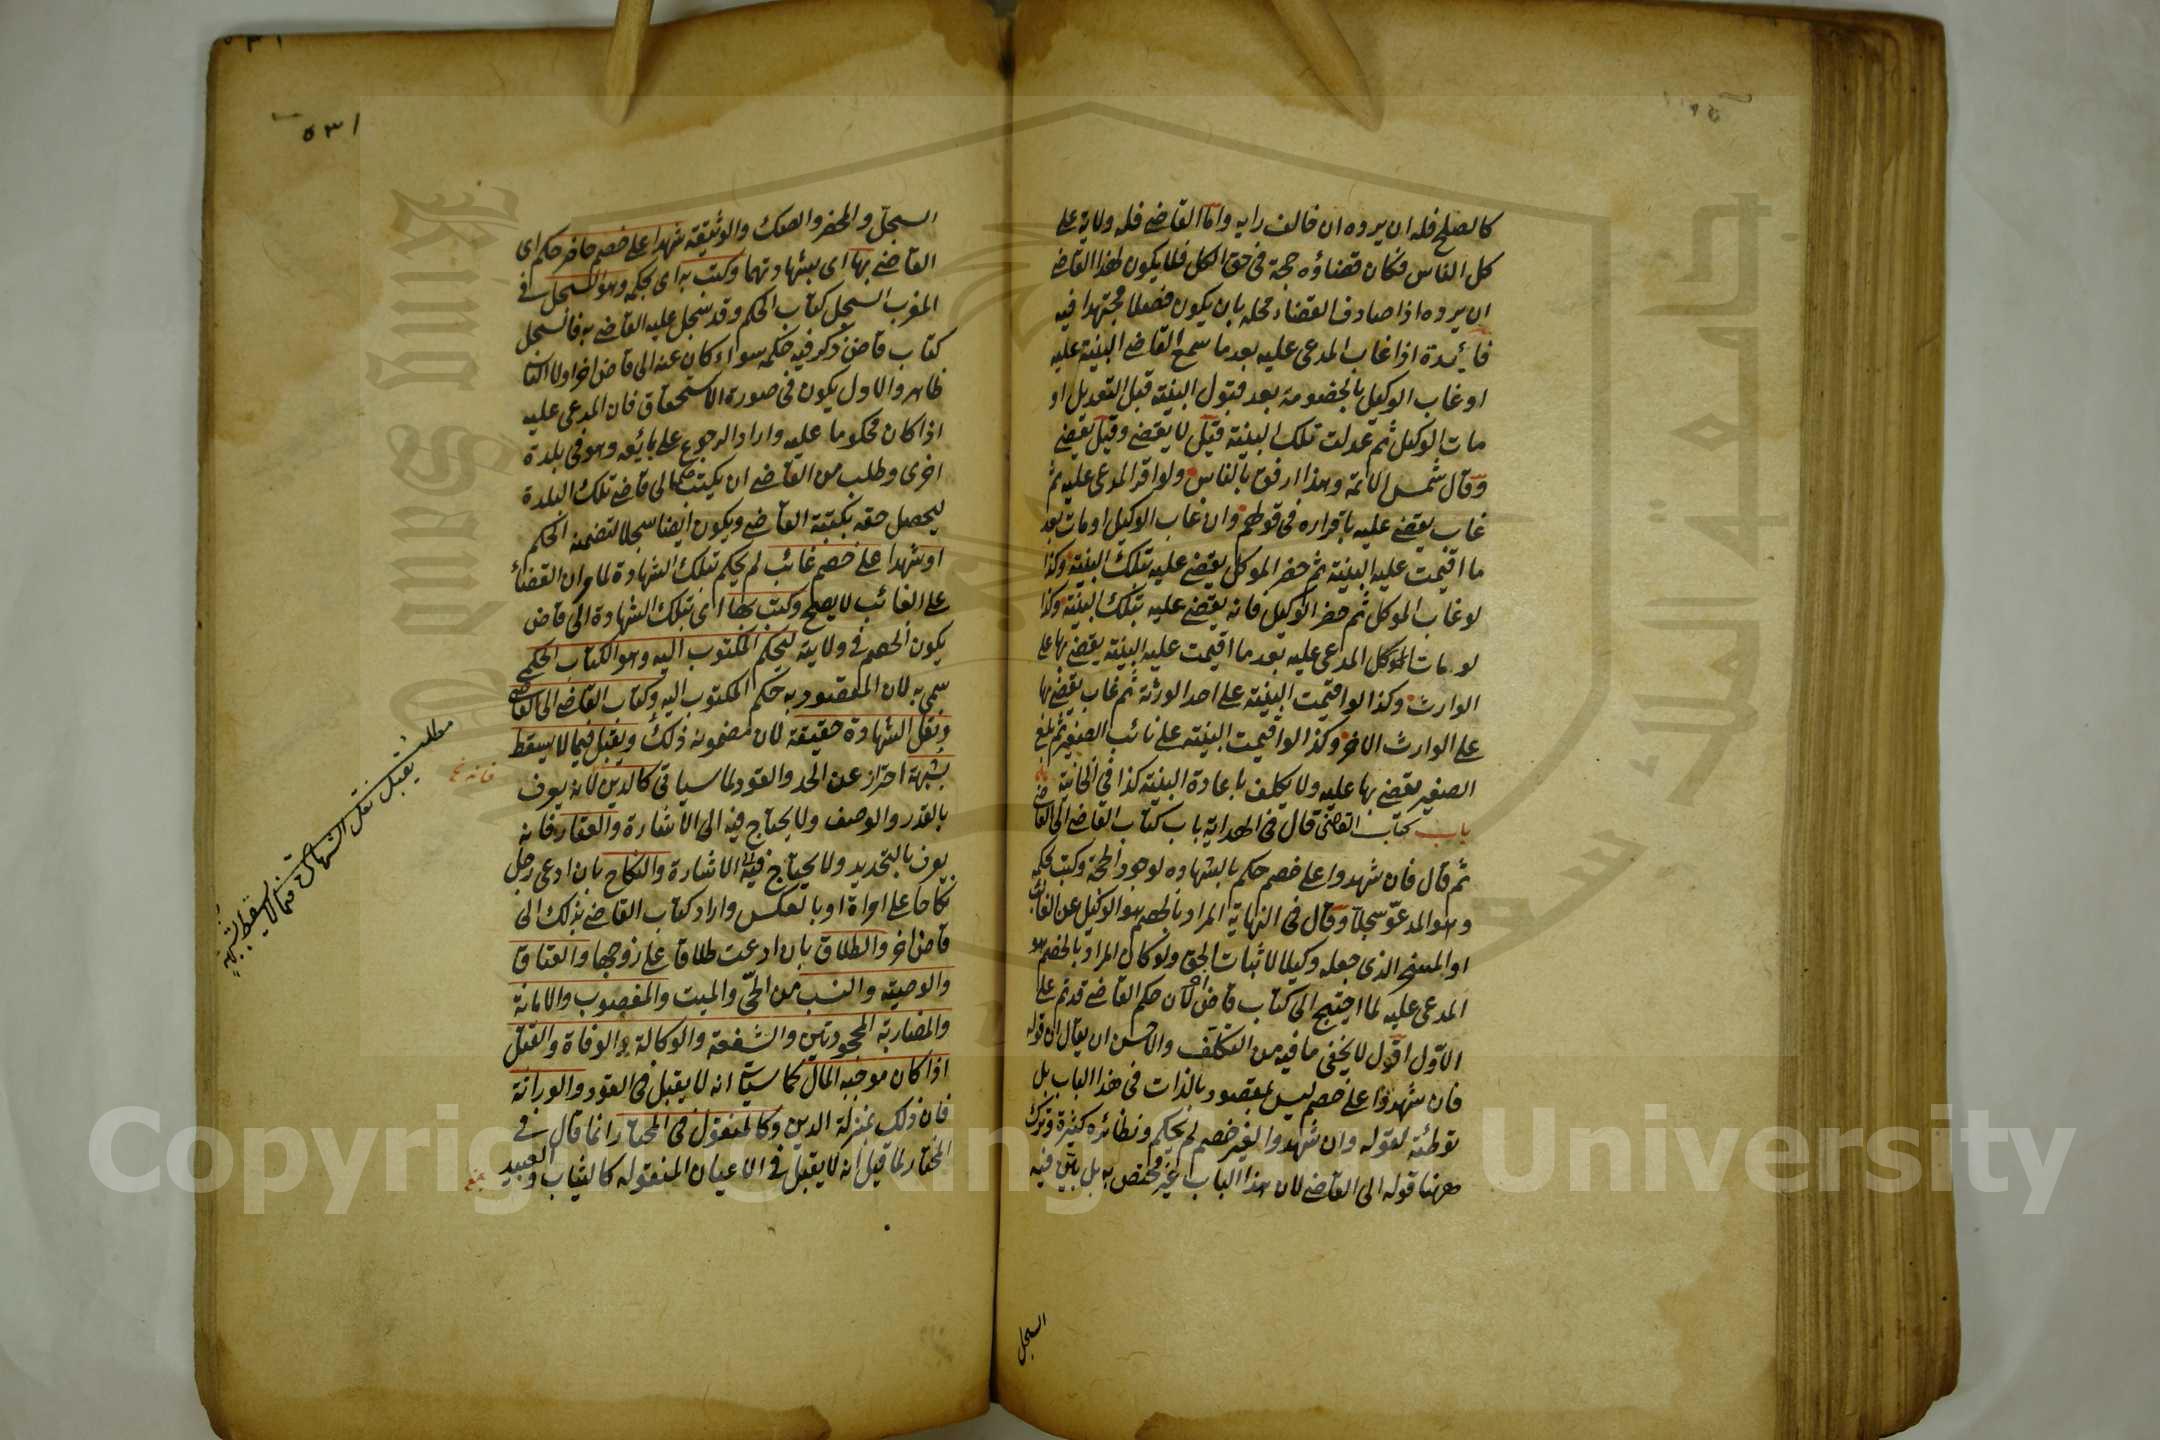 كالصلح فله ان يرده ان خالف رايه واما القاضي فله ولاية على
كل الناس فكان قضاؤه حجة في حق الكل فلا يكون لهذا القاضي
ان يرده اذا صادف القضاء محله بان يكون فصلا مجتهدا فيه
فائدة اذا غاب المدعى عليه بعد ما سمع القاضي البينة عليه
او غاب الوكيل بالخصومة بعد قبول البينة قبل التعديل او
مات الوكيل ثم عدلت تلك البينة قيل لا يقضي وقيل يقضي
وقال شمس الائمة وهذا ارفق بالناس ولو اقر المدعى عليه ثم
غاب يقضي عليه باقراره في قولهم وان غاب الوكيل او مات بعد
ما اقيمت عليه البينة ثم حضر الموكل يقضي عليه بتلك البينة وكذا
لو غاب الموكل ثم حضر الوكيل فانه يقضي عليه بتلك البينة وكذا
لو مات الموكل المدعى عليه بعد ما اقيمت عليه البينة يقضي بها على
الوارث وكذا لو اقيمت البينة على احد الورثة ثم غاب يقضي بها
على الوارث الاخر وكذا لو اقيمت البينة على نائب الصغير ثم بلغ
الصغير يقضي بها عليه ولا يكلف باعادة البينة كذا في الخانية
باب كتاب القاضي قال في الهداية باب كتاب القاضي الى القاضي
ثم قال فان شهدوا على خصم حكم بالشهادة لوجود الحجة وكتب بحكمه
وهو المدعو سجلا وقال في النهاية المراد بالخصم هو الوكيل عن الغائب
او المسخر الذي جعله وكيلا لاثبات الحق ولو كان المراد بالخصم هو
المدعى عليه لما احتيج الى كتاب قاض لان حكم القاضي قد تم على
الاول اقول لا يخفى ما فيه من التكلف والاحسن ان يقال ان قوله
فان شهدوا على خصم ليس بمقصود بالذات في هذا الباب بل
توطئة لقوله وان شهدوا لغير خصم لم يحكم ونظائره كثيرة وترك
معنا قوله الى القاضي لان هذا الباب غير مختص به بل بين فيه
السجل
٥٣١
السجل والمحضر والصك والوثيقة شهدا على خصم حاضر حكم اي
القاضي بها اي بشهادتهما وكتب به اي بحكمه وهو السجل في
المغرب السجل كتاب الحكم وقد سجل عليه القاضي به فالسجل
كتاب قاض ذكر فيه حكمه سواء كان عنه الى قاض اخر اولا الثاني
ظاهر والاول يكون في صورة الاستحقاق فان المدعى عليه
اذا كان محكوما عليه واراد الرجوع على بائعه وهو في بلدة
اخرى وطلب من القاضي ان يكتب حكما الى قاضي تلك البلدة
ليحصل حقه بكتبة القاضي ويكون ايضا سجلا لتضمنه الحكم
او شهدا على خصم غائب لم يحكم بتلك الشهادة لما مر ان القضاء
على الغائب لا يصح وكتب بها اي بتلك الشهادة الى قاض
يكون الخصم في ولايته ليحكم المكتوب اليه وهو الكتاب الحكمي
سمي به لان المقصود به حكم المكتوب اليه وكتاب القاضي الى القاضي
ونقل الشهادة حقيقة لان مضمونه ذلك ويقبل فيما لا يسقط
بشبهة احتراز عن الحد والقود لما سياتي كالدين لانه يعرف
بالقدر والوصف ولا يحتاج فيه الى الاشارة والعقار فانه
يعرف بالتحديد ولا يحتاج فيه الى الاشارة والنكاح بان ادعى رجل
نكاحا على امراة او بالعكس واراد كتاب القاضي بذلك الى
قاض اخر والطلاق بان ادعت طلاقا على زوجها والعتاق
والوصية والنسب من الحي والميت والمغصوب والامانة
والمضاربة المجحودتين والشفعة والوكالة والوفاة والقتل
اذا كان موجبه المال كما سياتي انه لا يقبل في القود والوراثة
فان ذلك بمنزلة الدين وكالمنقول في المختار انما قال في
المختار لما قيل انه لا يقبل في الاعيان المنقولة كالثياب والعبيد
مطلب يقبل نقل الشهادة فيما لا يسقط بشبهة
Copyright © King Saud University